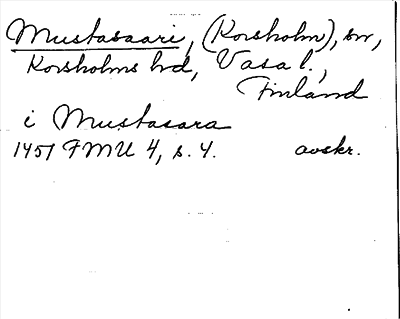 Mustasaari, (Korsholm), sn,
Korsholms hd, Vasa l.,
Finland
i Mustasara
1451 FMU 4, s. 4. avskr.